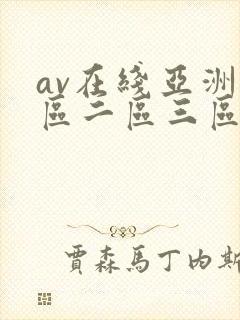 av在綫亞洲
區二區三區
賈森馬丁內斯